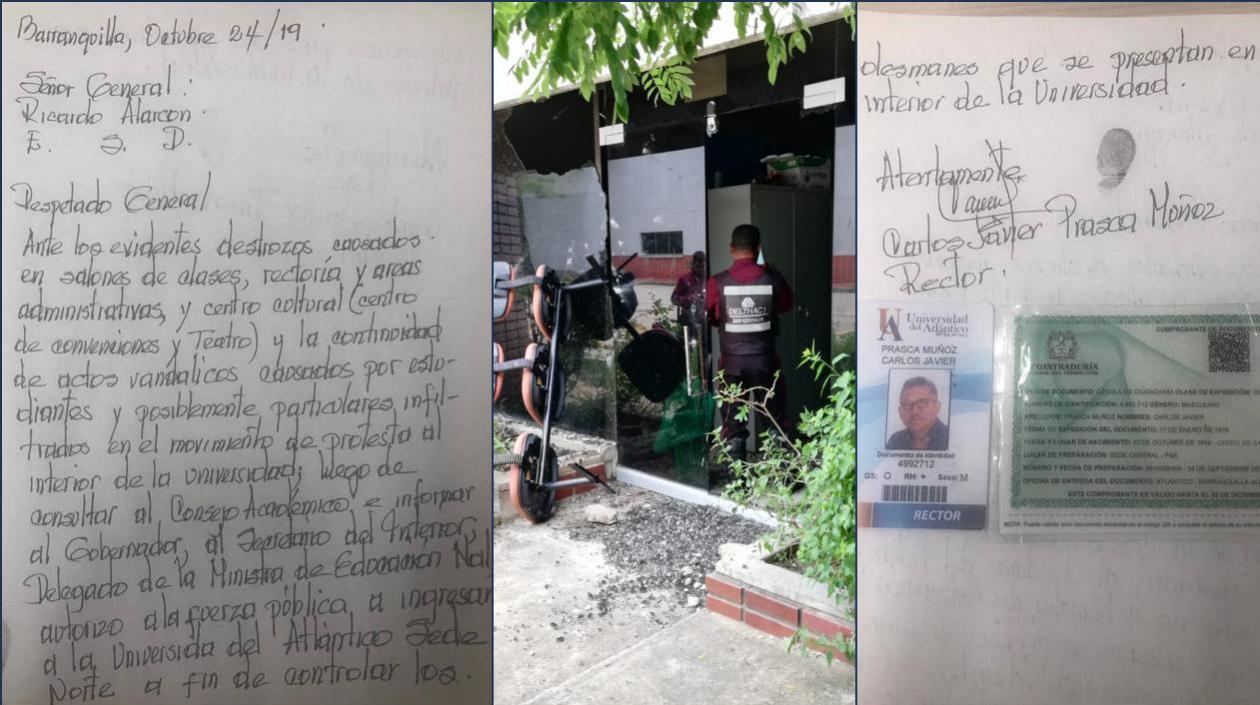 Barranquilla, Octubre 24/19.
Señor General:
Ricardo Alarcon.
E. S. D.
Respetado General
Ante los evidentes destrozos causados.
en salones de clases, rectoría y areas
administrativas, y centro cultural (centro
de convenciones y Teatro y la continuidad
de actos vandalicos causados por estu-
diantes y posiblemente particulares infil-
trados en el movimiento de protesta al
interior de la universidad; luego de
consultar al Consejo Académico e informar
al Gobernador, al Secretario del Interior,
Delegado de la Ministra de Educación Nal
autorizo a la fuerza pública, a ingresar
a la Universida del Atlántico Sede
Norte a fin de controlar los.
DELTHAC 1
SUPERVISOR
desmanes que se presentan en
interior de la Universidad.
Atentamente,
Carlos Javier Prasca Muñoz
Rector.
Universidad
del Atlántico
PRASCA MUÑOZ
CARLOS JAVIER
Documento de Identidad
4992712
GS: O RH: + Sexo: M
RECTOR
COMPROBANTE DE DOCUMEN
GISTRADURÍA
DE DOCUMENTO: CÉDULA DE CIUDADANÍA CLASE DE EXPEDICIÓN
APELLIDOS: PRASCA MUÑOZ NOMBRES: CARLOS JAVIER
FECHA DE EXPEDICIÓN DEL DOCUMENTO: 17 DE ENERO DE
FECHA Y LUGAR DE NACIMIENTO: DE OCTUBRE DE
LUGAR DE PREPARACIÓN: SEDE CENTRAL -
NÚMERO Y FECHA DE PREPARACIÓN:
OFICINA DE ENTREGA DEL DOCUMENTO: ATLÁNTICO - BARRANQUILLA
ESTE COMPROBANTE ES VÁLIDO HASTA EL